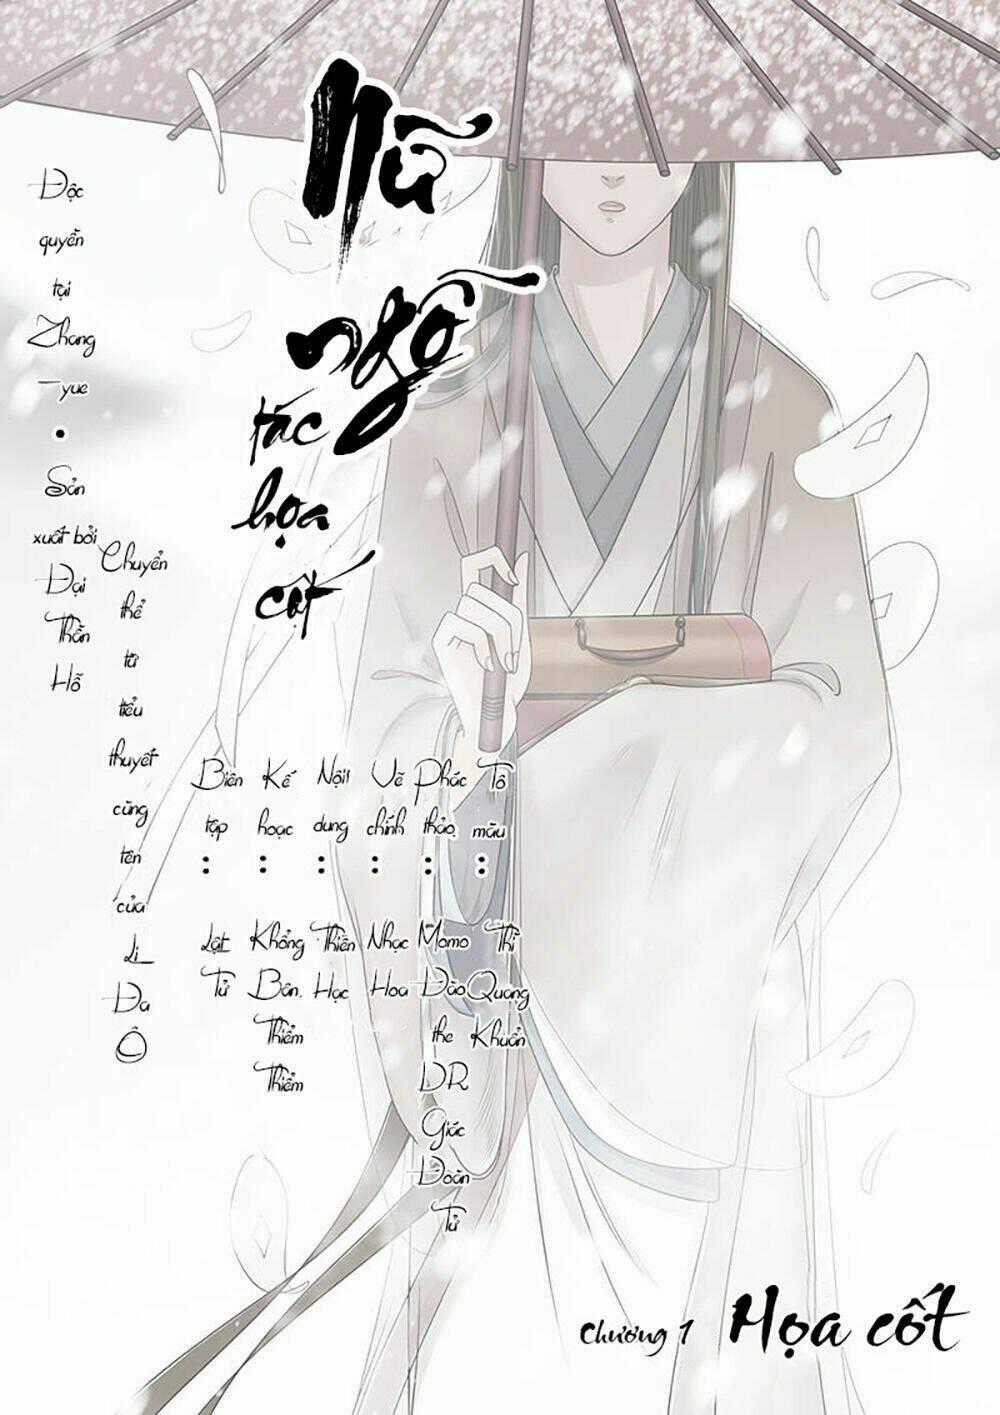 Nữ
ngỗ
tác
họa
cốt
Độc
quyền
tại
Zhang
-yue
•
Sản
xuất bởi
Đại
Thần
Hỗ
Chuyển
thể
từ
tiểu
thuyết
cùng
tên
của
Li
Đa
Ô
Biên
tập
:
Lật
Tử
Kế
hoạc
:
Khổng
Bân,
Thiểm
Thiểm
Nội
dung
:
Thiên
Hạc
Vẽ
chính
:
Nhạc
Hoa
Phác
thảo
:
Momo
Đào
the
DR
Giác
Đoàn
Tử
Tô
màu
:
Thì
Quang
Khuẩn
Chương 1 Họa cốt